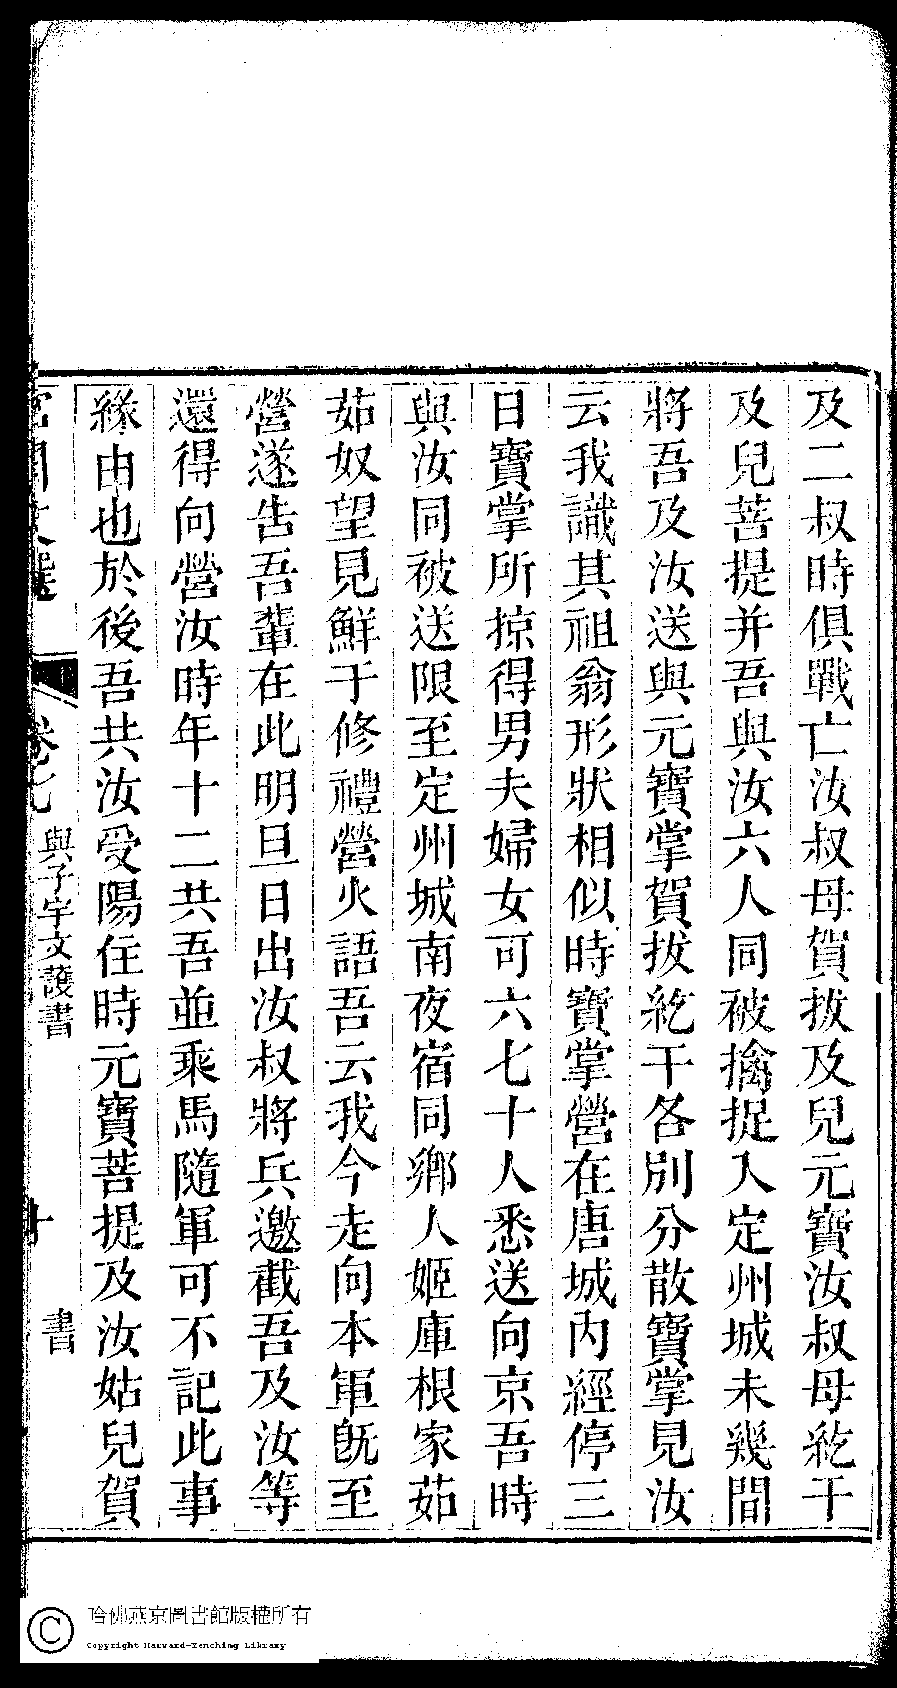 及二叔時俱戰亡汝叔母賀拔及兒元寶汝叔母紇干
及兒菩提并吾與汝六人同被擒捉入定州城未幾間
將吾及汝送與元寶掌賀拔紇干各別分散寶掌見汝
云我識其祖翁形狀相似時寶掌營在唐城內經停三
日寶掌所掠得男夫婦女可六七十人悉送向京吾時
與汝同被送限至定州城南夜宿同鄉人姬庫根家茹
茹奴望見鮮于修禮營火語吾云我今走向本軍旣至
營遂告吾輩在此明旦日出汝叔將兵邀截吾及汝等
還得向營汝時年十二共吾並乘馬隨軍可不記此事
緣由也於後吾共汝受陽任時元寶菩提及汝姑兒賀
宮閨文選
卷七
與子宇文護書
十
書
哈佛燕京圖書館版權所有
Copyright Harvard-Yenching Library